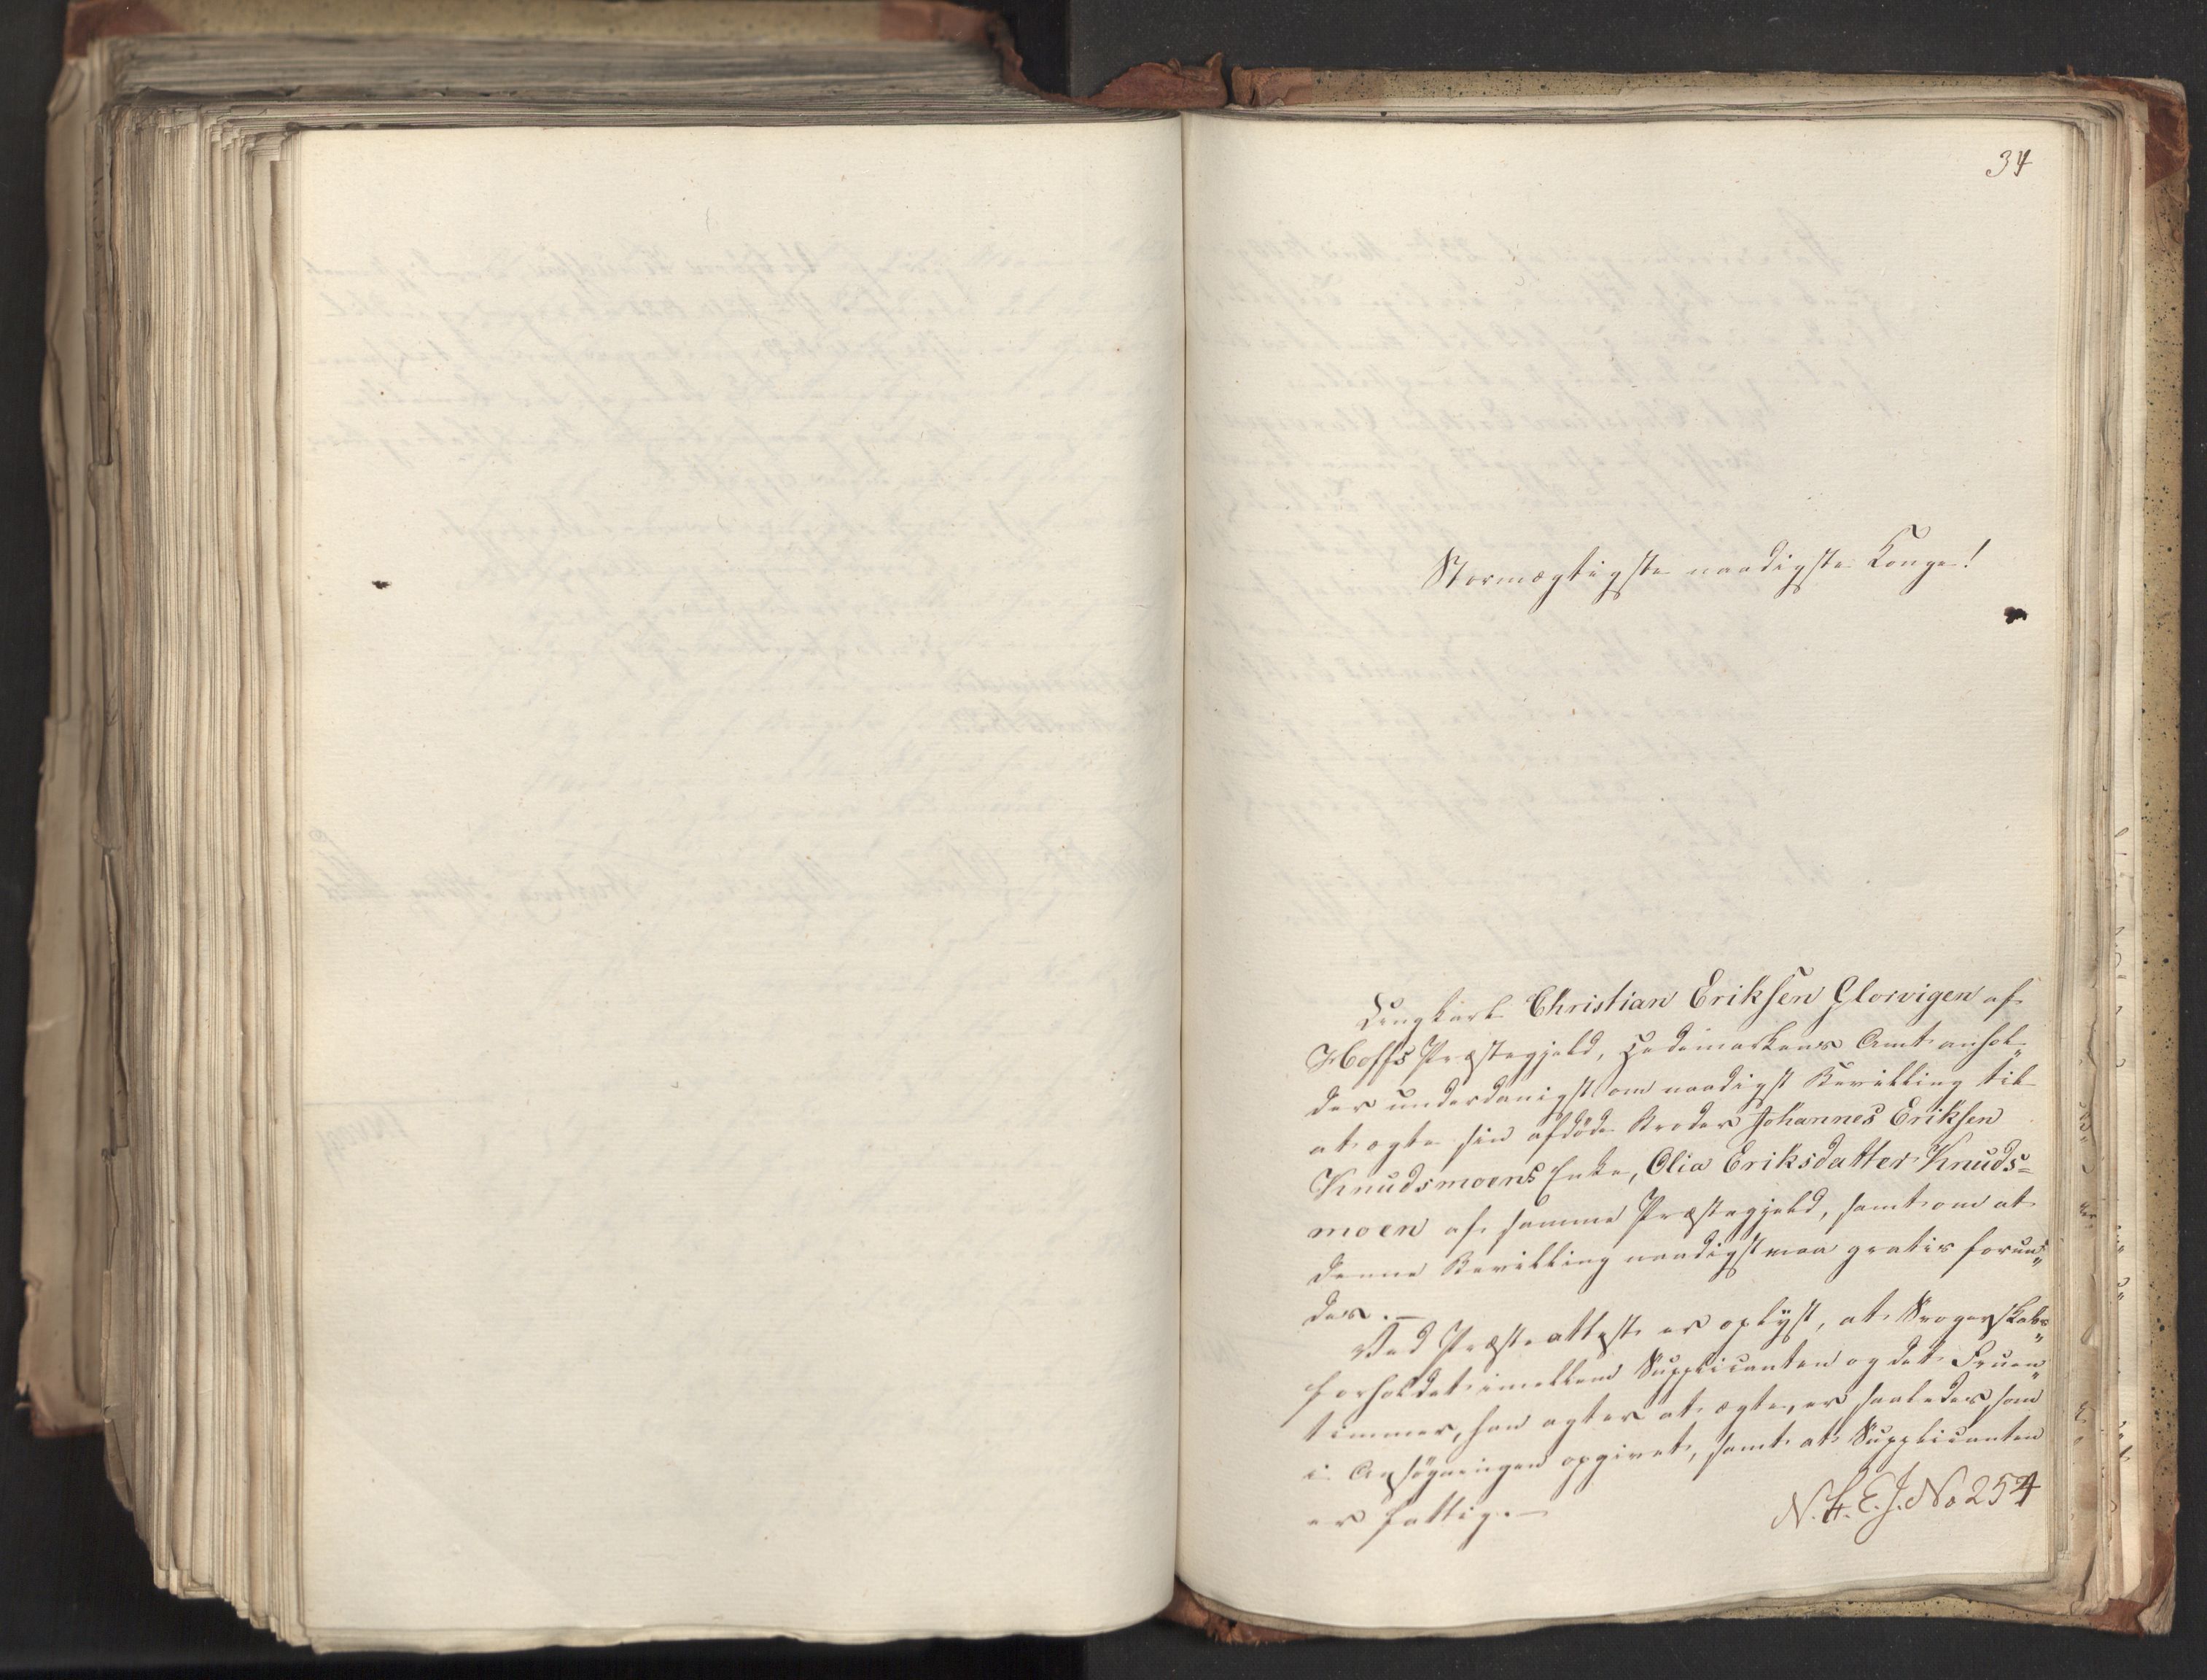 34
Stormægtigste naadigste Konge!
Ungkarl Christian Eriksen Glorvigen af
Hoffs Præstegjeld, Hedemarkens Amt anhol„
der underdanigst om naadigst Bevilling til
at ægte sin afdøde Broder Johannes Eriksen
Knudsmoens Enke, Olia Eriksdatter Knuds=
moen af samme Præstegjeld, samt om at
denne Bevilling naadigst maa gratis forun„
des.—
Ved Præsteattest er oplyst, at Svogerskabs„
forholdet imellem Supplicanten og det Fruen„
timmer, han agter at ægte, er saaledes, som
i Ansøgningen opgivet, samt at Supplicanten
er fattig.—
N. H. E. J. No 254